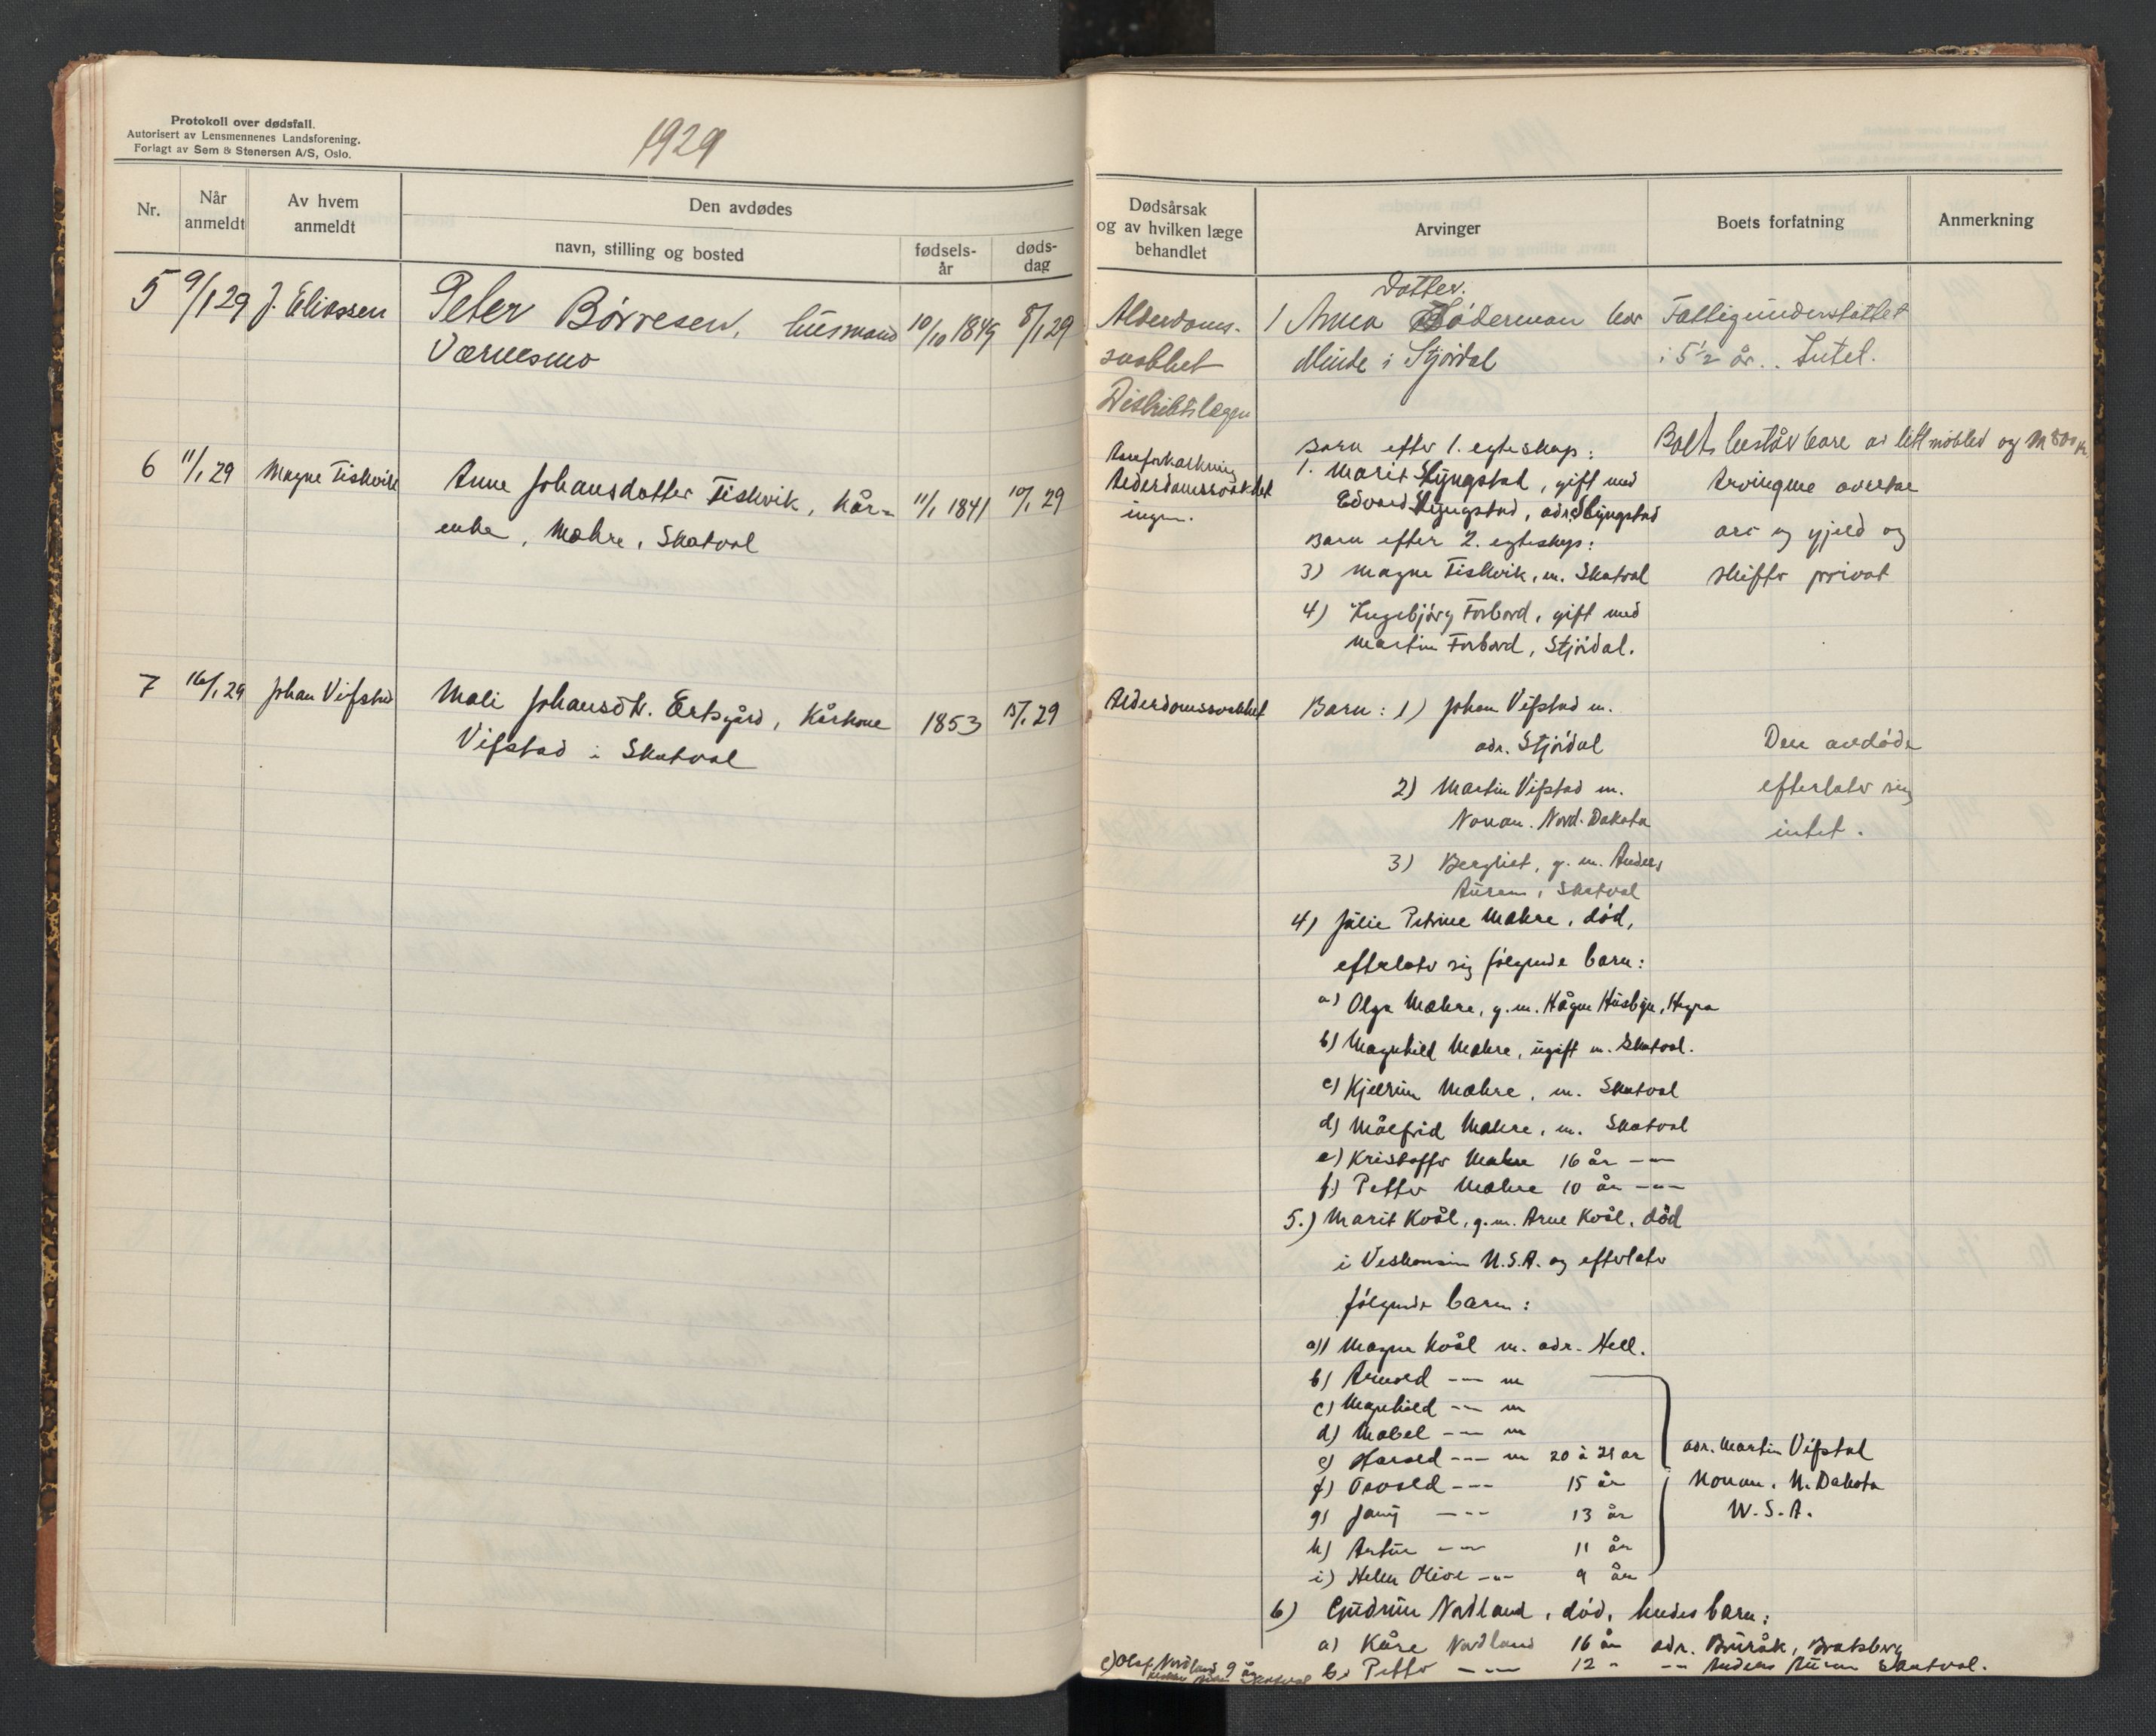 Protokoll over dødsfall.
Autorisert av Lensmennenes Landsforening.
Forlagt av Sem & Stenersen A/S, Oslo.
1929
Nr.
Når anmeldt
Av hvem anmeldt
Den avdødes
navn, stilling og bosted
fødsels-år
døds-dag
Dødsårsak og av hvilken læge behandlet
Arvinger
Boets forfatning
Anmerkning
5 9/1 29 J. Eliassen Peter Børresen, husmand 10/10 1849 8/1 29
Værnesmo
Alderdoms-
svakhet
Distriktslægen
Datter.
1 Anna Söderman bor
Minde i Stjørdal
Fattigunderstøttet
i 5 1/2 år.. Intet.
6 11/1 29 Magne Fiskvik Anne Johansdatter Fiskvik, kår- 11/1 1841 10/1 29
enke, Mæhre, Skatval
Åreforkalkning
Alderdomssvakhet
ingen.
Barn efter 1. egteskap:
1. Marit Slyngstad, gift med
Edvard Slyngstad, adr. Slyngstad
Barn efter 2. egteskap:
3) Magne Fiskvik, m. Skatval
4) Ingebjørg Forbord, gift med
Martin Forbord, Stjørdal.
består bare av litt møbler og
Arvingene overtar
arv og gjeld og
skifter privat
7 16/1 29 Johan Vifstad Mali Johansdtr. Ertsgård, Kårkone 1853 15/1 29
Vifstad i Skatval
Alderdomssvakhet
Barn: 1) Johan Vifstad m.
adr. Stjørdal
2) Martin Vifstad m.
Nord. Dakota
3) Bergliot, g. m. Anders
Auran, Skatval
Den avdøde
efterlater sig
intet.
4) Julie Petrine Mæhre, død,
efterlater sig følgende barn:
a) Olga Mæhre, g. m. Hågen Husbyn, Hegra
b) Magnhild Mæhre, ugift m. Skatval.
c) Kjellrun Mæhre, m. Skatval
d) Målfrid Mæhre, m. Skatval
e) Kristoffer Mæhre 16 år -"-
f) Petter Mæhre 10 år -"-
5.) Marit Kvål, g. m. Arne Kvål, død
i Viskonsin U.S.A. og efterlater
følgende barn:
a) Magne Kvål m. adr. Hell.
b) Arnold -"- m
c) Magnhild -"- m
d) Mabel -"- m
e) Harald -"- m 20 à 21 år
f) Osvald -"- 15 år
g) -"- 13 år
h) Artur -"- 11 år
i) Helen Olive -"- 9 år
adr. Martin Vifstad
N. Dakota
U.S.A.
6) Gudrun Nordland, død, hendes barn:
a) Kåre Nordland 16 år adr. Bruråk, Bratsberg
b) Petter -"- 12 " -"- Anders Auran Skatval.
c) Olaf Nordland 9 år
Skatval